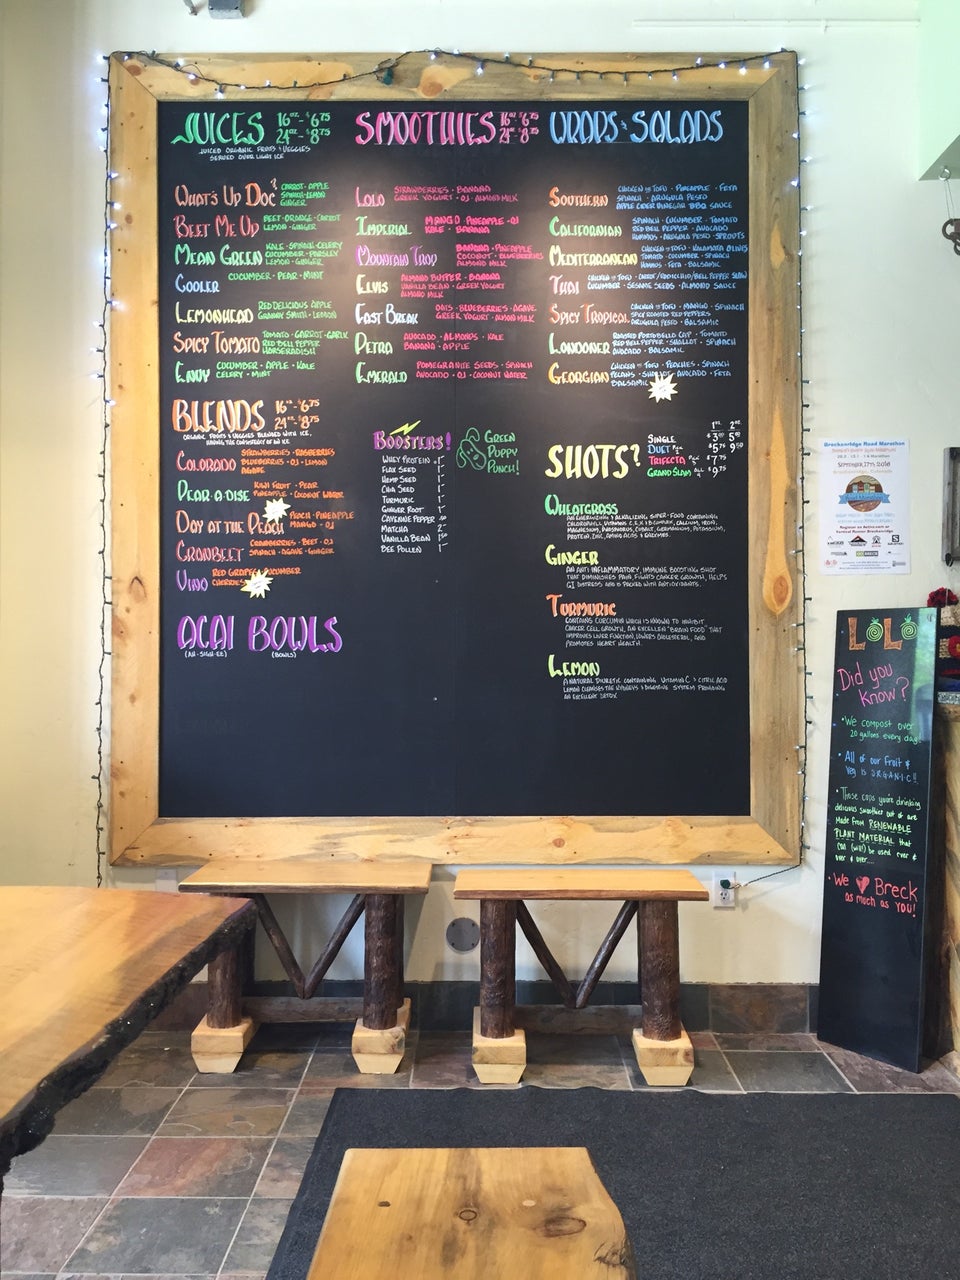 JUICES 16oz - $6.75
24oz - $8.75
JUICED ORGANIC FRUITS & VEGGIES
SERVED OVER LIGHT ICE
WHAT'S UP DOC? CARROT · APPLE
SPINACH · LEMON
GINGER
BEET ME UP BEET · ORANGE · CARROT
LEMON · GINGER
MEAN GREEN KALE · SPINACH · CELERY
CUCUMBER · PARSLEY
LEMON · GINGER
COOLER CUCUMBER · PEAR · MINT
LEMONHEAD RED DELICIOUS APPLE
GRANNY SMITH · LEMON
SPICY TOMATO TOMATO · CARROT · GARLIC
RED BELL PEPPER
HORSERADISH
ENVY CUCUMBER · APPLE · KALE
CELERY · MINT
BLENDS 16oz - $6.75
24oz - $8.75
ORGANIC FRUITS & VEGGIES BLENDED WITH ICE,
HAVING THE CONSISTENCY OF AN ICE
COLORADO STRAWBERRIES · RASPBERRIES
BLUEBERRIES · OJ · LEMON
AGAVE
PEAR-A-DISE KIWI FRUIT · PEAR
PINEAPPLE · COCONUT WATER
DAY AT THE PEACH PEACH · PINEAPPLE
MANGO · OJ
CRANBEET CRANBERRIES · BEET · OJ
SPINACH · AGAVE · GINGER
VINO RED GRAPES · CUCUMBER
CHERRIES
ACAI BOWLS
(AH-SIGH-EE) (BOWLS)
SMOOTHIES 16oz - $6.75
24oz - $8.75
LOLO STRAWBERRIES · BANANA
GREEK YOGURT · OJ · ALMOND MILK
IMPERIAL MANGO · PINEAPPLE · OJ
KALE · BANANA
MOUNTAIN TROP BANANA · PINEAPPLE
COCONUT · BLUEBERRIES
ALMOND MILK
ELVIS ALMOND BUTTER · BANANA
VANILLA BEAN · GREEK YOGURT
ALMOND MILK
FAST BREAK OATS · BLUEBERRIES · AGAVE
GREEK YOGURT · ALMOND MILK
PETRA AVOCADO · ALMONDS · KALE
BANANA · APPLE
EMERALD POMEGRANITE SEEDS · SPINACH
AVOCADO · OJ · COCONUT WATER
BOOSTERS!
WHEY PROTEIN
FLAX SEED
HEMP SEED
CHIA SEED
TURMURIC
GINGER ROOT
CAYENNE PEPPER .50
MATCHA
VANILLA BEAN
BEE POLLEN
GREEN
PUPPY
PUNCH!
WRAPS & SALADS
SOUTHERN CHICKEN or TOFU · PINEAPPLE · FETA
SPINACH · ARUGULA PESTO
APPLE CIDER VINEGAR BBQ SAUCE
CALIFORNIAN SPINACH · CUCUMBER · TOMATO
RED BELL PEPPER · AVOCADO
HUMMUS · ARUGULA PESTO · SPROUTS
MEDITERRANEAN CHICKEN or TOFU · KALAMATA OLIVES
TOMATO · CUCUMBER · SPINACH
HUMMUS · FETA · BALSAMIC
THAI CHICKEN or TOFU · CARROT/RADICCHIO/BELL PEPPER SLAW
CUCUMBER · SESAME SEEDS · ALMOND SAUCE
SPICY TROPICAL CHICKEN or TOFU · MANGO · SPINACH
SPICY ROASTED RED PEPPERS
ARUGULA PESTO · BALSAMIC
LONDONER ROASTED PORTOBELLO CAP · TOMATO
RED BELL PEPPER · SHALLOT · SPINACH
AVOCADO · BALSAMIC
GEORGIAN CHICKEN or TOFU · PEACHES · SPINACH
PECANS · SHALLOT · AVOCADO · FETA
BALSAMIC
SHOTS?
1oz 2oz
SINGLE $3.00 5.00
DUET $5.75 9.50
TRIFECTA $7.75
GRAND SLAM ALL 4 $9.75
WHEATGRASS
AN ENERGIZING & ALKALIZING SUPER-FOOD CONTAINING
CHLOROPHYLL, VITAMINS C, E, K & B COMPLEX, CALCIUM, IRON,
MAGNESIUM, PHOSPHORUS, COBALT, GERMANIUM, POTASSIUM,
PROTEIN, ZINC, AMINO ACIDS & ENZYMES.
GINGER
AN ANTI INFLAMMATORY, IMMUNE BOOSTING SHOT
THAT DIMINISHES PAIN, FIGHTS CANCER GROWTH, HELPS
GI DISTRESS AND IS PACKED WITH ANTIOXIDANTS.
TURMURIC
CONTAINS CURCUMIN WHICH IS KNOWN TO INHIBIT
CANCER CELL GROWTH, AN EXCELLENT "BRAIN FOOD" THAT
IMPROVES LIVER FUNCTION, LOWERS CHOLESTEROL, AND
PROMOTES HEART HEALTH.
LEMON
A NATURAL DIURETIC CONTAINING VITAMIN C & CITRIC ACID
LEMON CLEANSES THE KIDNEYS & DIGESTIVE SYSTEM PROVIDING
AN EXCELLENT DETOX.
Breckenridge Road Marathon
September 17th, 2016
Breckenridge, Colorado
LOLO
Did you
know?
· We compost over
20 gallons every day!
· All of our fruit &
Veg is O.R.G.A.N.I.C!!
· Those cups you're drinking
delicious smoothies out of are
Made from RENEWABLE
PLANT MATERIAL that
can (will) be used over &
over & over....
· We ♥ Breck
as much as YOU!